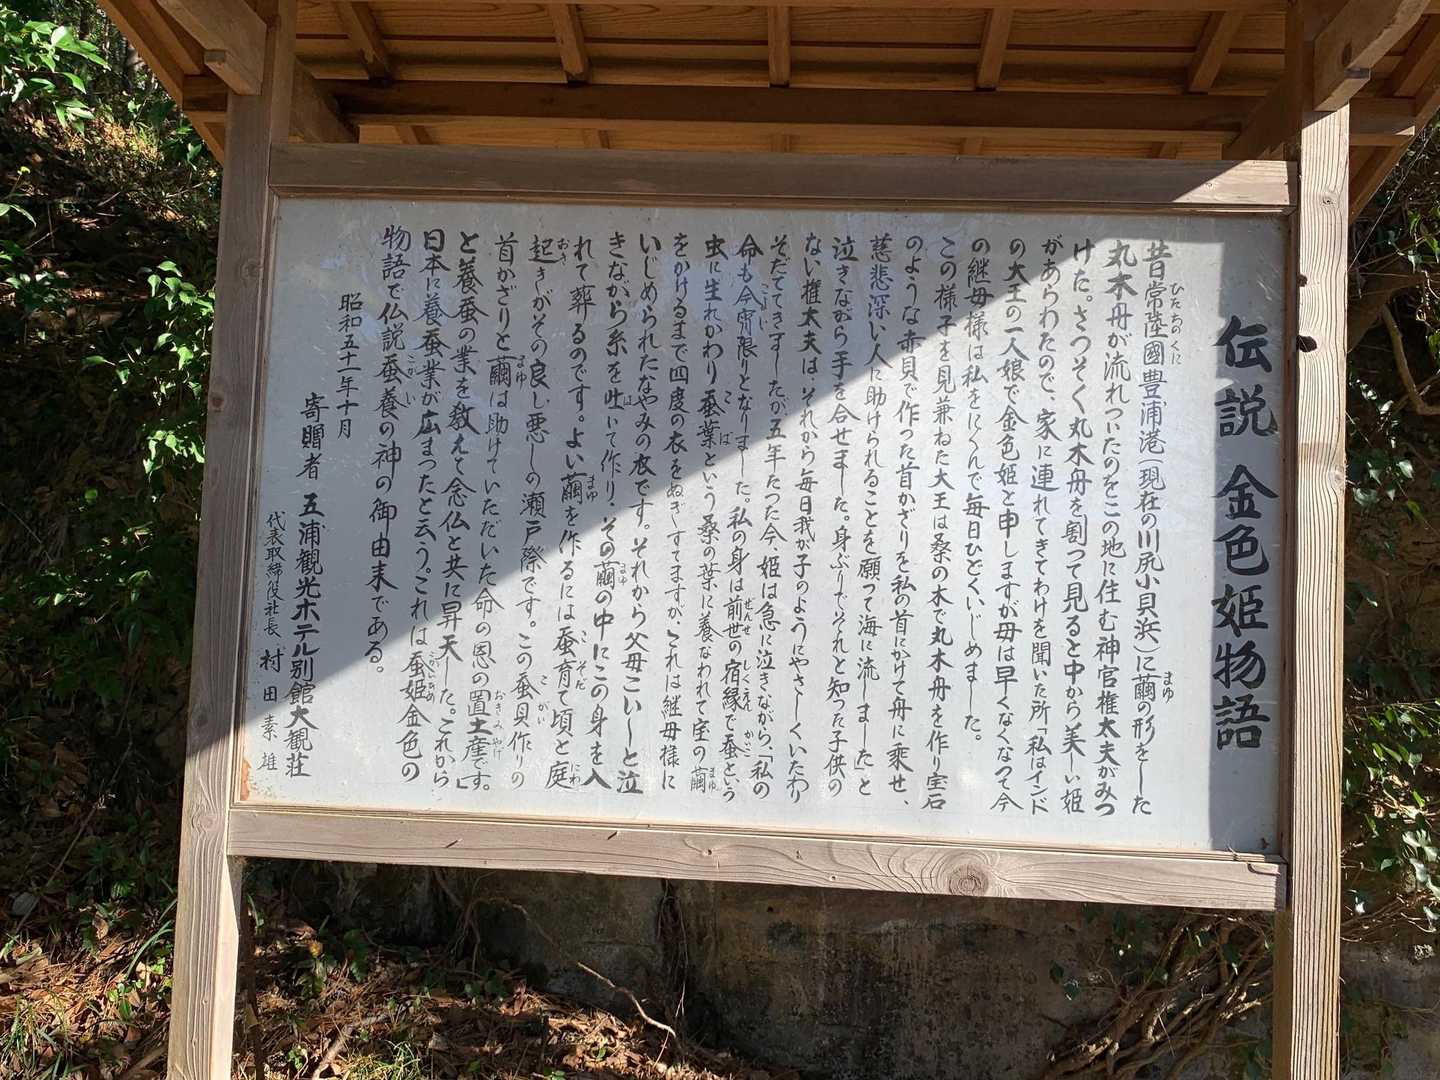 伝説 金色姫物語
昔常陸國豊浦港(現在の川尻小貝浜)に繭の形をした
丸木舟が流れついたのをこの地に住む神官権太夫がみつ
けた。さつそく丸木舟を割つて見ると中から美しい姫
があらわれたので、家に連れてきてわけを聞いた所「私はインド
の大王の一人娘で金色姫と申しますが母は早くなくなつて今
の継母様は私をにくんで毎日ひどくいじめました。
この様子を見兼ねた大王は桑の木で丸木舟を作り宝石
のような赤貝で作った首かざりを私の首にかけて舟に乘せ、
慈悲深い人に助けられることを願って海に流しました」と
泣きながら手を合せました。身ぶりでそれと知った子供の
ない権太夫は、それから毎日我が子のようにやさしくいたわり
そだててきましたが五年たつた今、姫は急に泣きながら、「私の
命も今宵限りとなりました。私の身は前世の宿縁で蚕という
虫に生れかわり蚕葉という桑の葉に養なわれて宝の繭
をかけるまで四度の衣をぬぎすてますが、これは継母様に
いじめられたなやみの衣です。それから父母こいしと泣
きながら糸を吐いて作り、その繭の中にこの身を入
れて葬るのです。よい繭を作るには蚕育て頃と庭
起きがその良し悪しの瀬戸際です。この蚕貝作りの
首かざりと繭は助けていただいた命の恩の置土産です。」
と養蚕の業を教えて念仏と共に昇天した。これから
日本に養蚕業が広まつたと云う。これは蚕姫金色の
物語で仏説蚕養の神の御由来である。
昭和五十一年十月
寄贈者 五浦観光ホテル別館大観荘
代表取締役社長 村田素雄